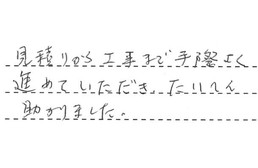 見積りから工事まで手際よく
進めていただき、たいへん
助かりました。